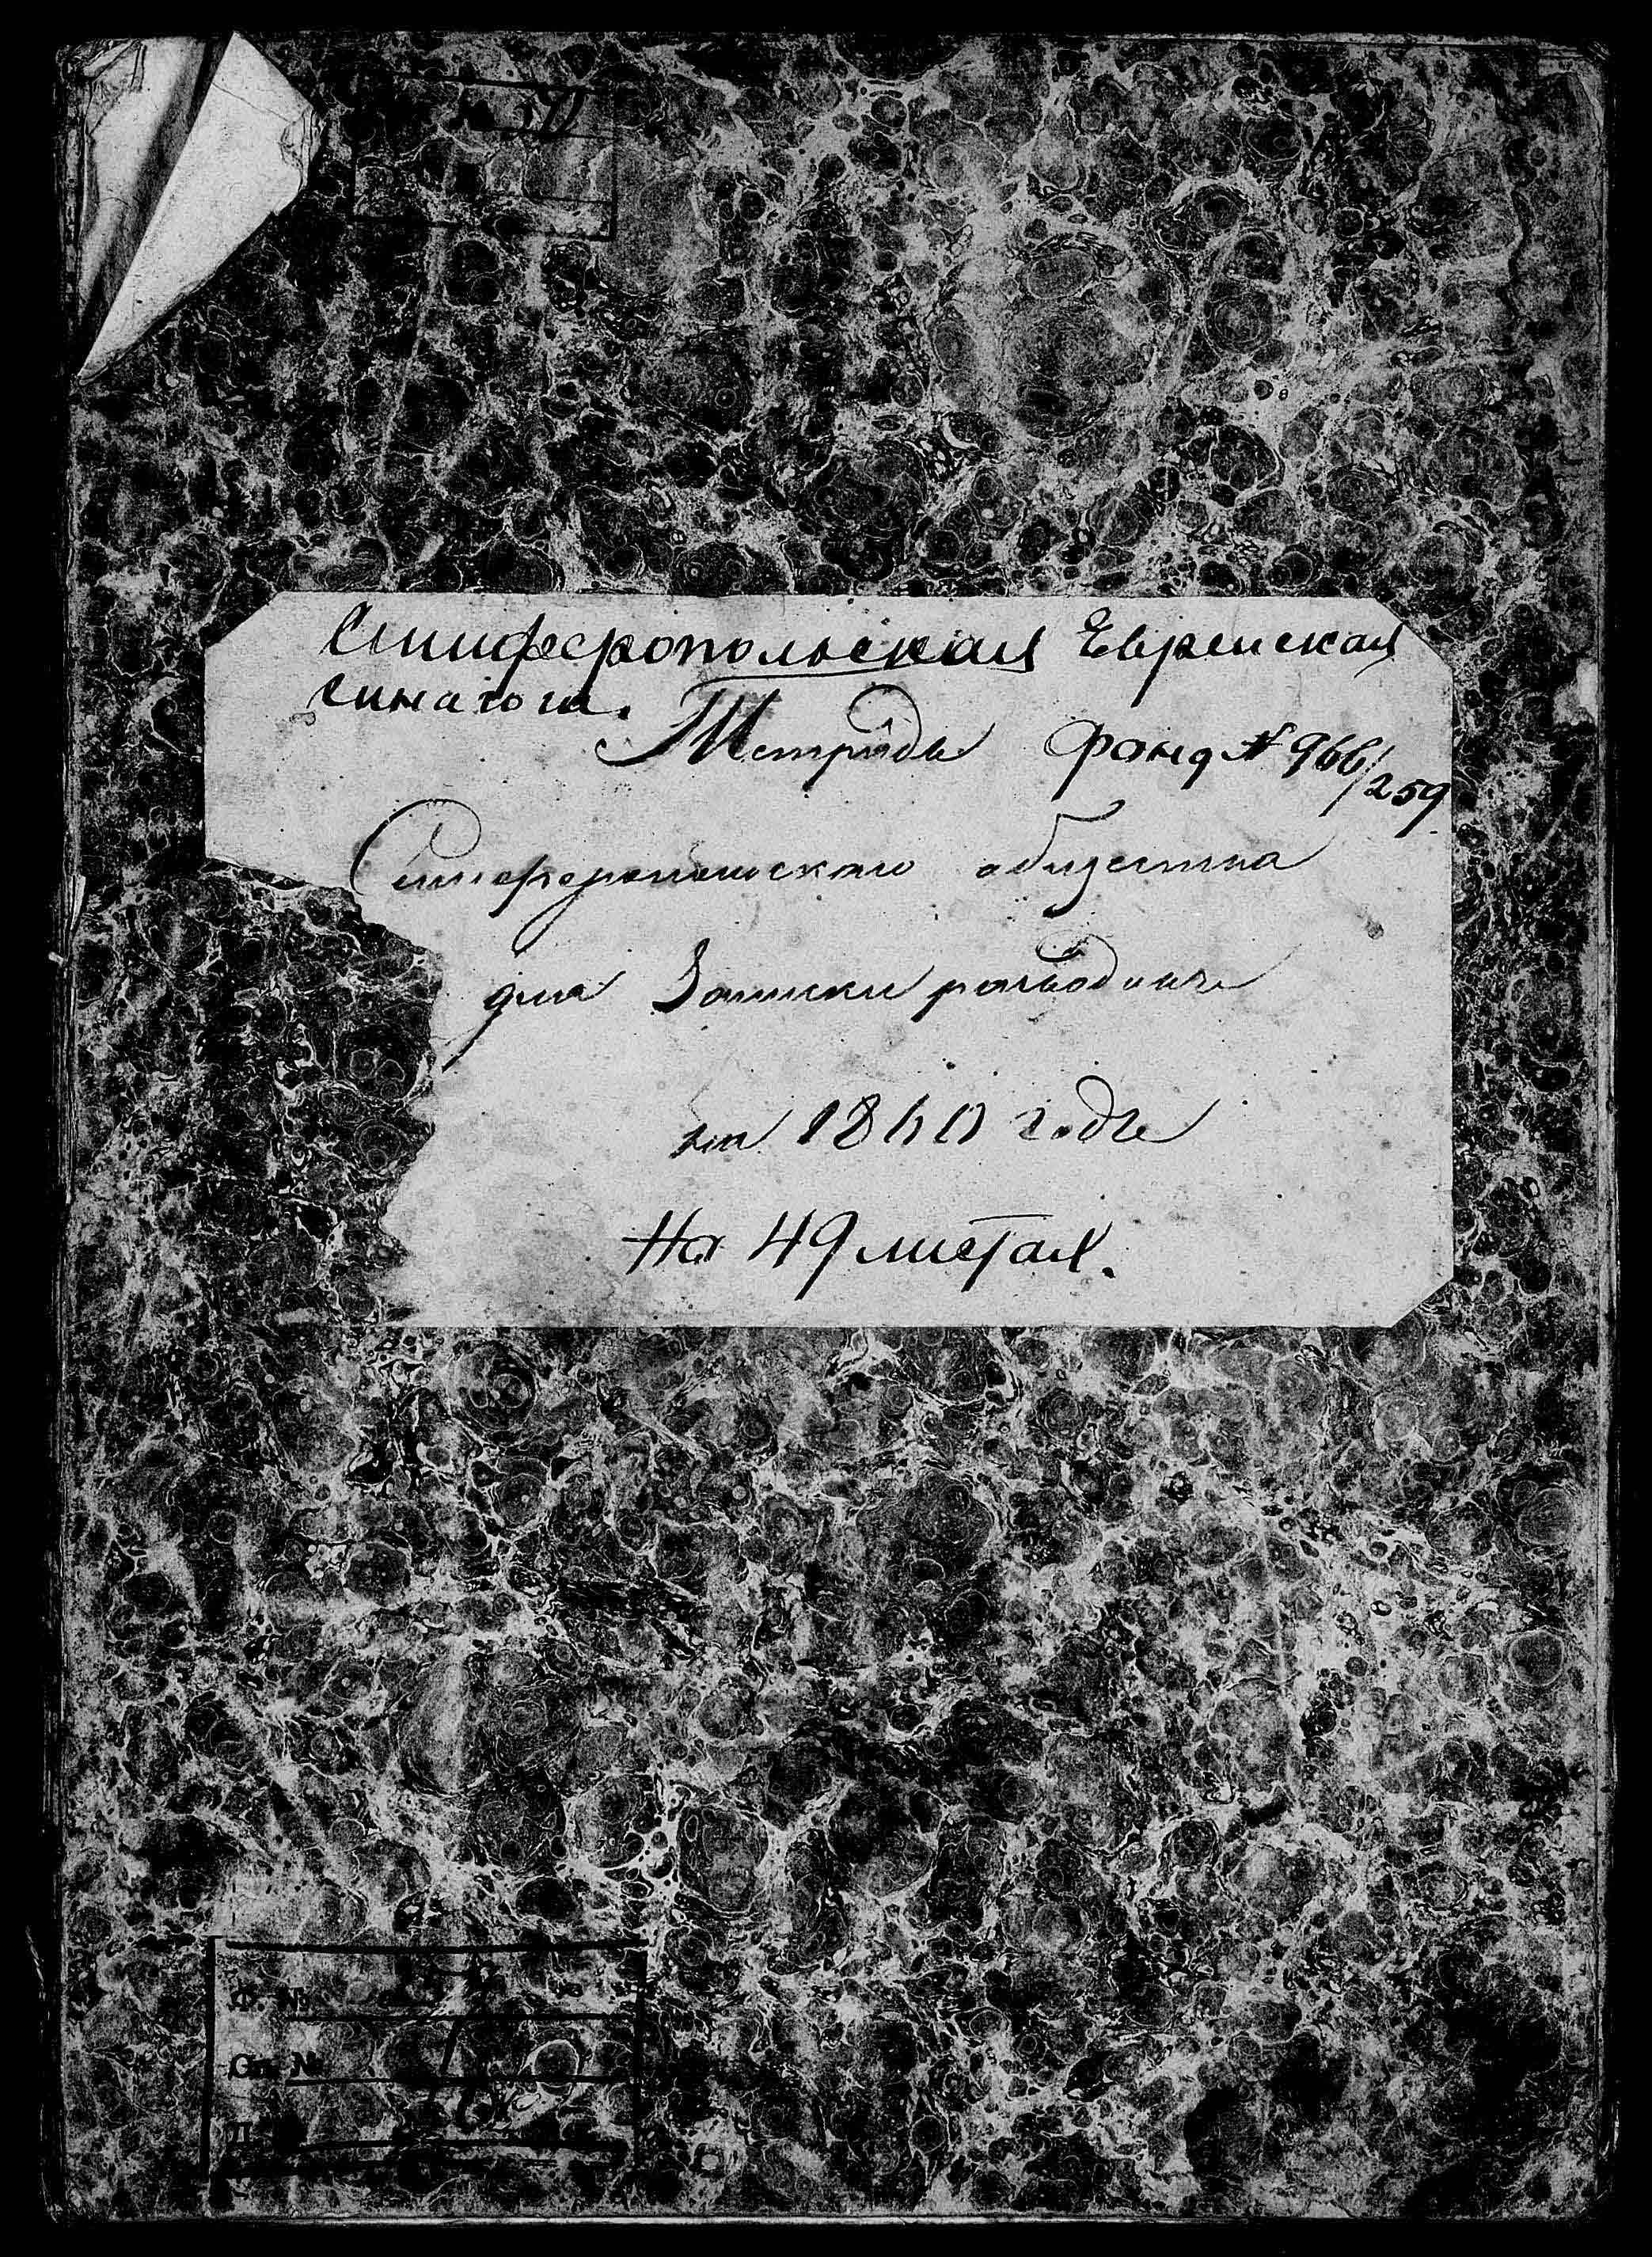 Симферопольская Еврейская
синагога.
Тетрадь Фонд № 966/259
Симферопольскаго общества
для Записки разводныхъ
на 1860 годъ
На 49 листах.
Ф. №
Оп. №